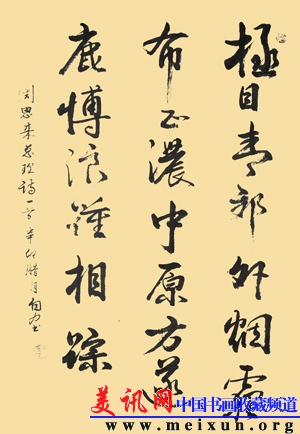 極目青郊外烟霾
布正濃中原方逐
鹿博浪踵相踪
周恩来总理诗一首 辛卯腊月
美讯网 中国书画收藏频道
www.meixun.org